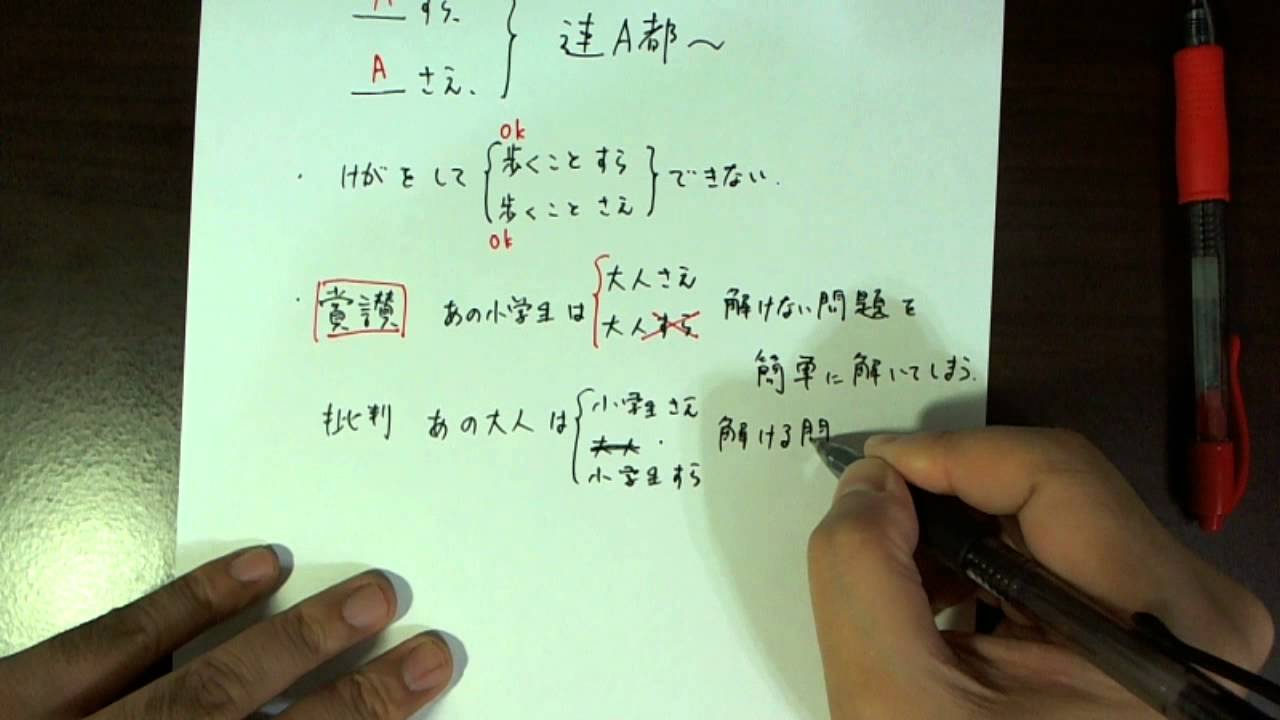 A すら、
A さえ、
連A都〜
ok
・けがをして
歩くこと すら
歩くこと さえ
できない.
ok
・賞讃 あの小学生は
大人さえ
大人すら
解けない問題を
簡単に解いてしまう.
批判 あの大人は
小学生さえ
大人.
小学生すら
解ける問